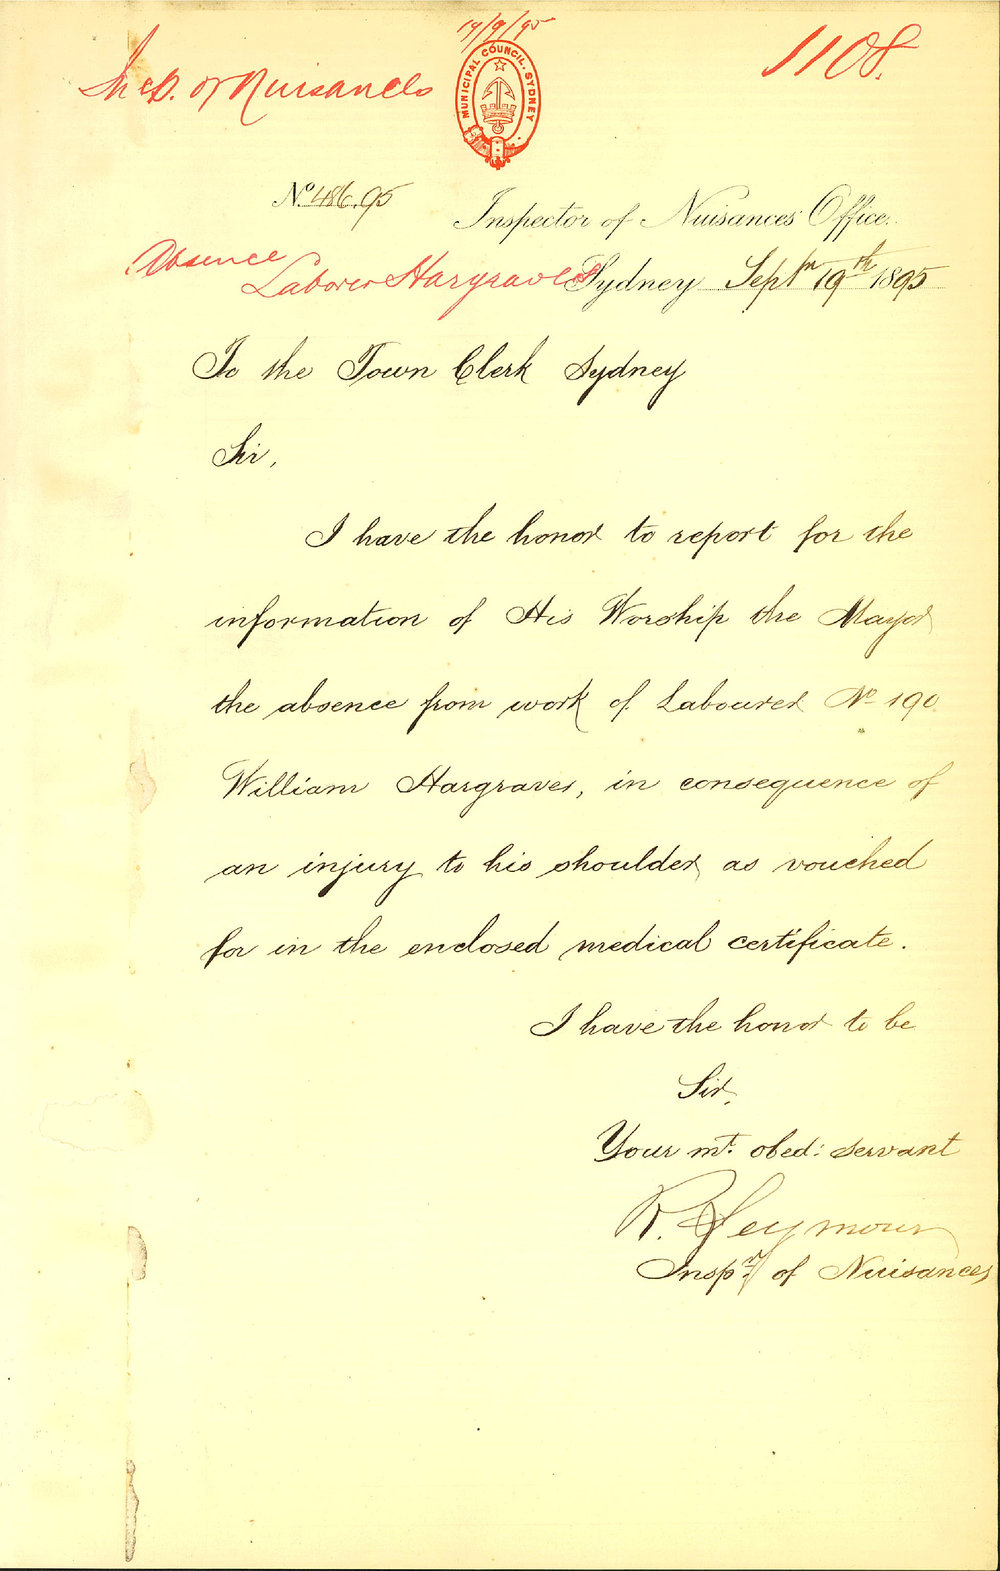 19/9/95
1108.
Insp. of Nuisances
MUNICIPAL COUNCIL. SYDNEY
No. 486.95
Inspector of Nuisances Office.
Absence
Laborer Hargraves
Sydney Septr 19th 1895
To the Town Clerk Sydney
Sir,
I have the honor to report for the
information of His Worship the Mayor
the absence from work of Labourer No 190
William Hargraves, in consequence of
an injury to his shoulder, as vouched
for in the enclosed medical certificate.
I have the honor to be
Sir,
Your mt. obed: servant
R. Seymour
Inspr. of Nuisances